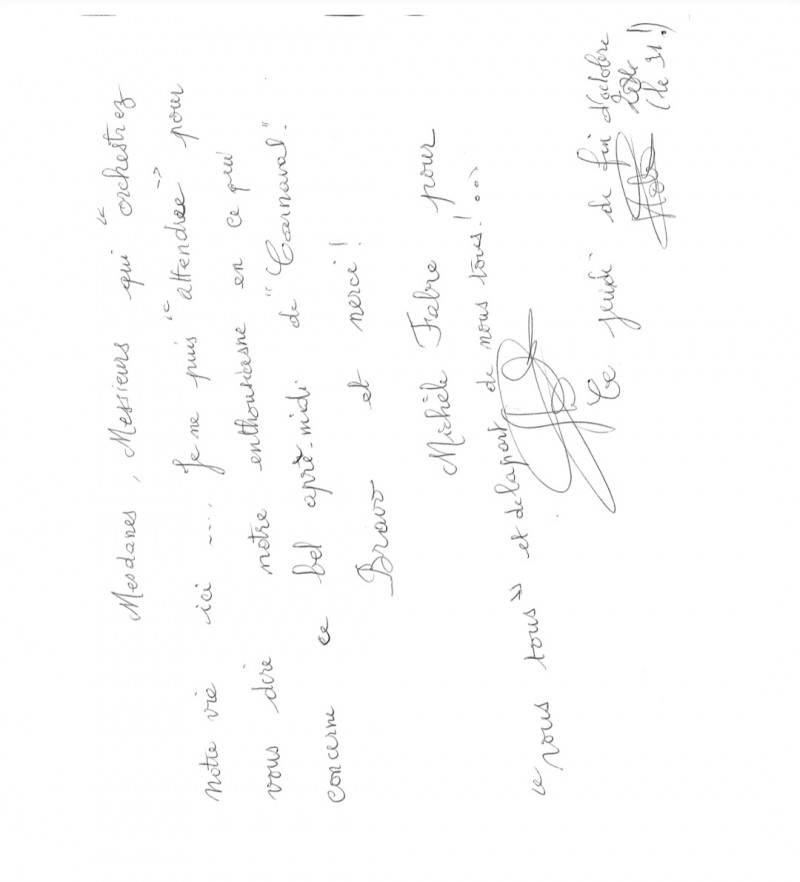 Mesdames, Messieurs qui "orchestrez
notre vie ici .... Je ne puis "attendre" pour
vous dire notre enthousiasme en ce qui
concerne ce bel après-midi de "Carnaval".
Bravo et merci!
Michèle Fabre pour
"vous tous" et de la part de nous tous!...
Ce jeudi de fin d'octobre
(le 31!)